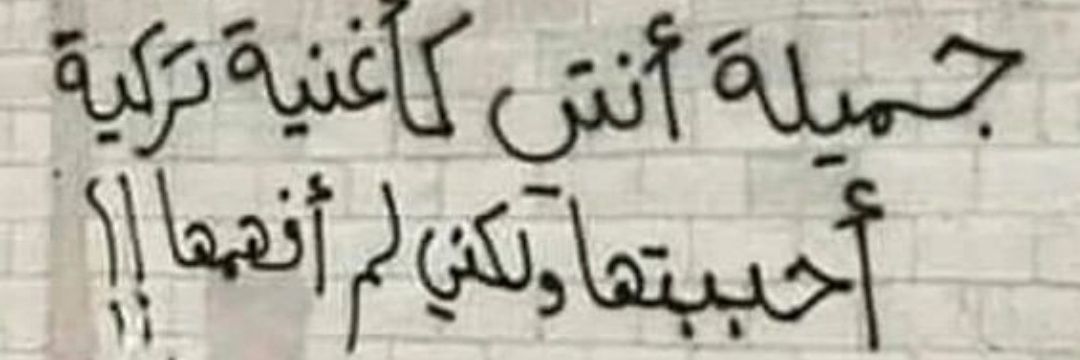 جميلة أنتي كأغنية تركية
أحببتها ولكني لم أفهمها !!